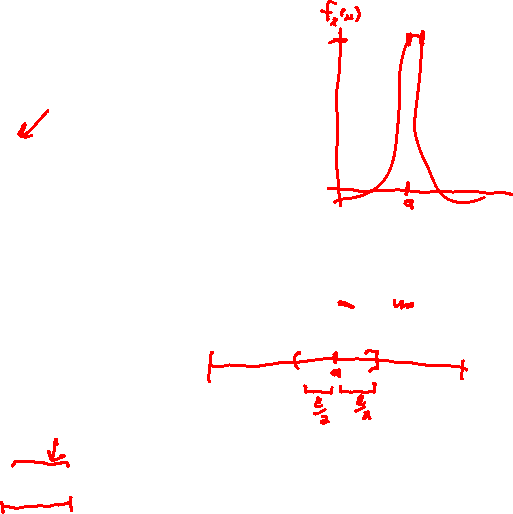 fₓ(x)
a
( a ]
ε/2 ε/2